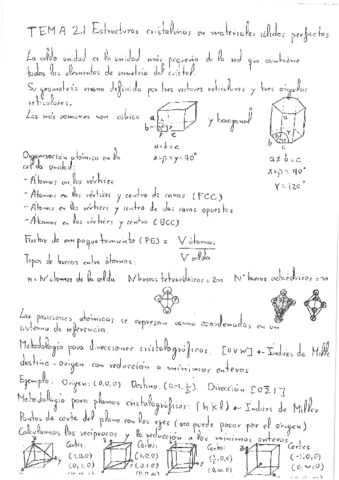 TEMA 2.1 Estructuras cristalinas en materiales sólidos perfectos
La celda unidad es la unidad más pequeña de la red que contiene
todos los elementos de simetría del cristal.
Su geometría viene definida por tres vectores reticulares y tres ángulos
reticulares.
Las más comunes son cúbica y hexagonal
a=b=c
α=β=γ=90°
a≠b=c
α=β=90°
γ=120°
Organización atómica en la
celda unidad:
- Átomos en los vértices
- Átomos en los vértices y centro de caras (FCC)
- Átomos en los vértices y centro de dos caras opuestas
- Átomos en los vértices y centro (BCC)
Factor de empaquetamiento (FE) = V átomos / V celda
Tipos de huecos entre átomos:
n = Nº átomos de la celda Nº huecos tetraédricos = 2n Nº huecos octaédricos = n
Las posiciones atómicas se expresan como coordenadas en un
sistema de referencia.
Metodología para direcciones cristalográficas: [UVW] Índices de Miller
destino - origen con reducción a mínimos enteros
Ejemplo: Origen: (0,0,0) Destino: Dirección
Metodología para planos cristalográficos: (hkl) Índices de Miller
Puntos de corte del plano con los ejes (no puede pasar por el origen)
Calculamos los recíprocos y la reducción a los mínimos enteros
Cortes: Cortes: Cortes: Cortes
(1,0,0) (1,0,0) (-1,0,0)
(0,1,0) (0,1,0) (0,∞,0)